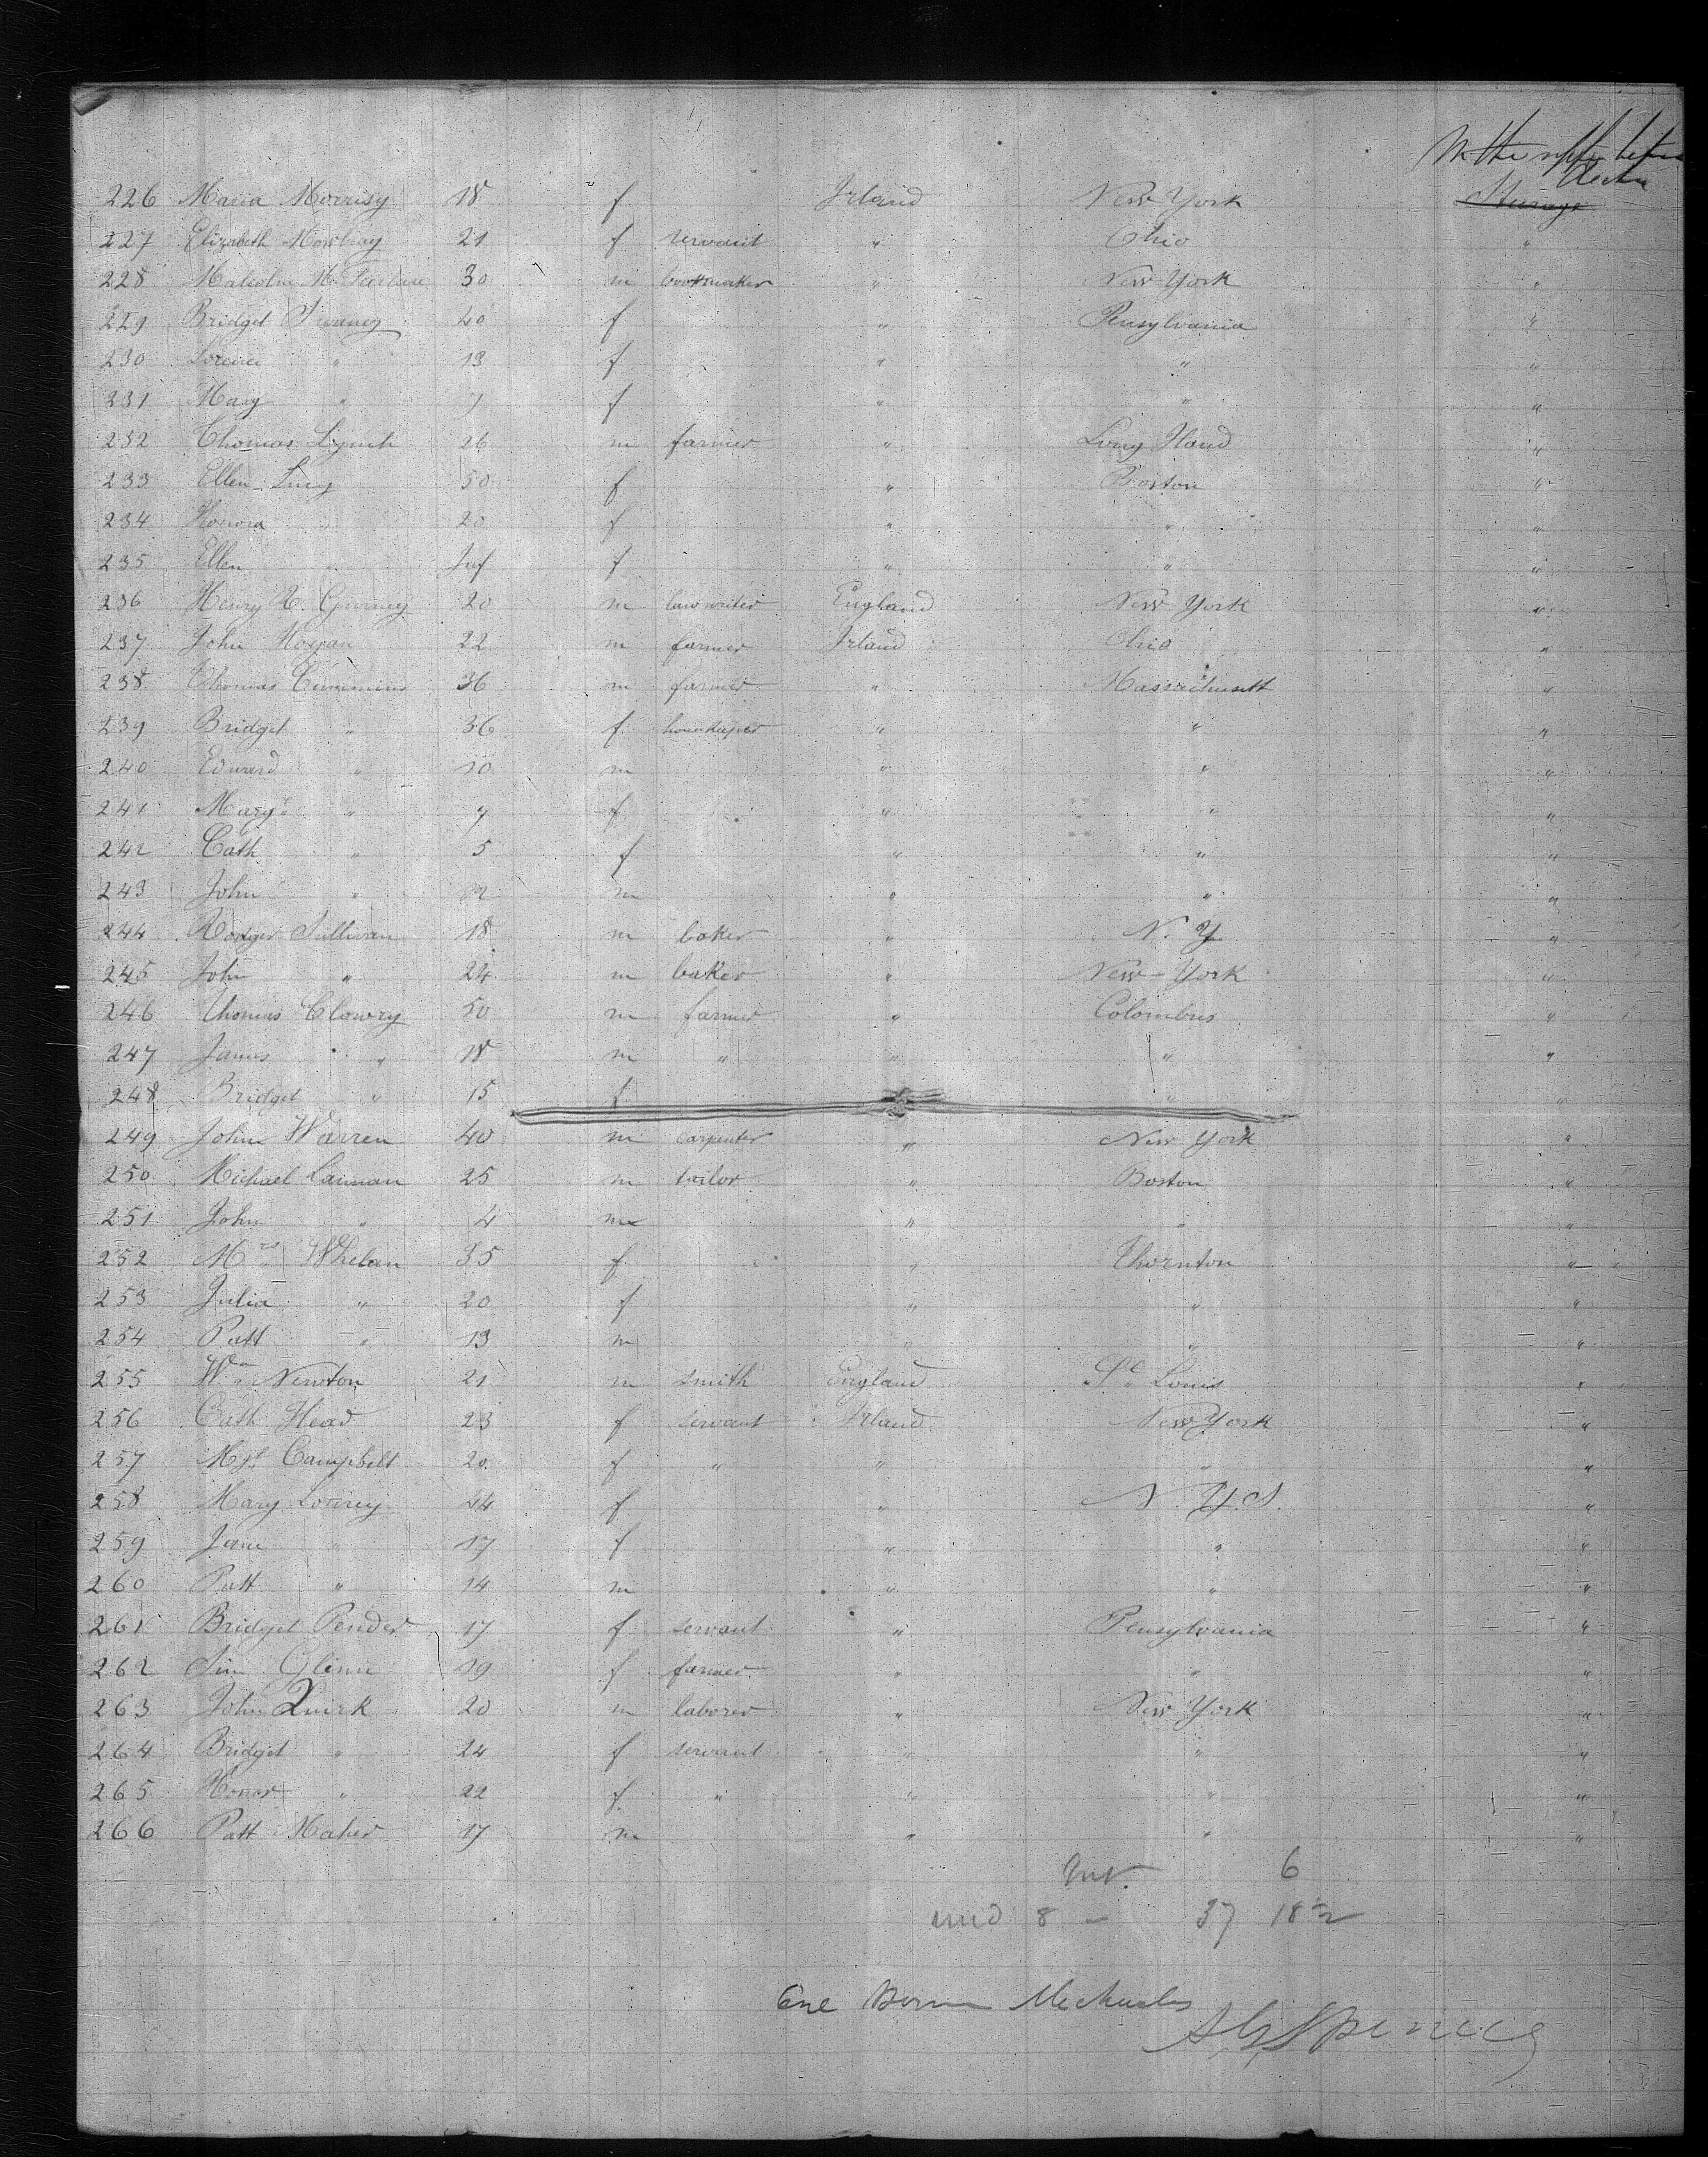 In the upper between
Decks
226 Maria Morrisy 18 f Irland New York Steerage
227 Elizabeth Mowbray 21 f servant " Ohio "
228 Malcolm Mc Farlane 30 m bootmaker " New York "
229 Bridget Swaney 40 f " Pensylvania "
230 " 13 f " " "
231 Mary " 7 f " " "
232 Thomas Lynch 26 m farmer " Long Iland "
233 Ellen Lucy 50 f " Boston "
234 Honora " 20 f " " "
235 Ellen " Inf f " " "
236 Henry R. Gurney 20 m law writer England New York "
237 John Horgan 22 m farmer Irland Ohio "
238 Thomas Cummins 36 m farmer " Massachusett "
239 Bridget " 36 f housekeper " " "
240 Edward " 10 m " " "
241 Mary " 7 f " " "
242 Cath " 5 f " " "
243 John " m " " "
244 Rodger Sullivan 18 m baker " N. Y "
245 John " 24 m baker " New-York "
246 Thomas Clowry 50 m farmer " Colombus "
247 James " 18 m " " " "
248 Bridget " 15 f " "
249 John Warren 40 m carpenter " New York "
250 Michael Cannan 25 m tailor " Boston "
251 John " 4 m " " "
252 Mrs Whelan 35 f " Thornton "
253 Julia " 20 f " " "
254 Patt " 13 m " " "
255 Wm Newton 21 m smith England St Louis "
256 Cath Head 23 f servant Irland New York "
257 Mgt Campbell 20 f " " " "
258 Mary Lowrey 44 f " N. Y. S. "
259 Jane " 17 f " " "
260 Patt " 14 m " " "
261 Bridget Pender 17 f servant " Pensylvania "
262 Sim Glenn 19 f farmer " " "
263 John Quirk 20 m laborer " New York "
264 Bridget " 24 f servant " " "
265 Honor " 22 f " " " "
266 Patt Maher 17 m " " "
Inf. 6
und 8 - 37 18½
One Born